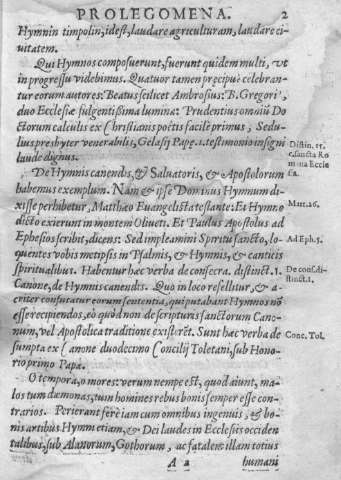 PROLEGOMENA. 2
Hymnin timpolin, idest, laudare agriculturam, laudare ci-
uitatem.
Qui Hymnos composuerunt, fuerunt quidem multi, vt
in progressu videbimus. Quatuor tamen precipuè celebran-
tur eorum autores: Beatus scilicet Ambrosius: B. Gregori',
duo Ecclesiæ fulgentissima lumina: Prudentius omniū Do
ctorum calculis ex Christianis poëtis facilè primus, Sedu-
lius presbyter venerabilis, Gelasij Pape . 1. testimonio insigni
laude dignus.
Distin. 15.
c. sancta Ro
mana Eccle
sia.
De Hymnis canendis, & Saluatoris, & Apostolorum
habemus exemplum. Nam & ipse Dominus Hymnum di-
xisse perhibetur, Matthæo Euangelista testante: Et Hymno
dicto exierunt in montem Oliueti. Et Paulus Apostolus ad
Ephesios scribit, dicens: Sed impleamini Spiritu sancto, lo-
quentes vobis metipsis in Psalmis, & Hymnis, & canticis
spiritualibus. Habentur hæc verba de consecra. distinct. 1.
Canone, de Hymnis canendis. Quo in loco refellitur, & a-
criter confutatur eorum sententia, qui putabant Hymnos nō
esse recipiendos, eò quòd non de scripturis sanctorum Cano-
num, vel Apostolica traditione existerēt. Sunt hæc verba de
sumpta ex Canone duodecimo Concilij Toletani, sub Hono-
rio primo Papæ.
Matt. 26.
Ad Eph. 5.
De cons. di-
stinct. 1.
Conc. Tol.
O tempora, o mores: verum nempe est, quod aiunt, ma-
los tum dæmonas, tum homines rebus bonis semper esse con-
trarios. Perierant ferè iam cum omnibus ingenuis, & bo-
nis artibus Hymni etiam, & Dei laudes in Ecclesiis occiden
talibus, sub Alanorum, Gothorum, ac fatalem illam totius
A 2 humani